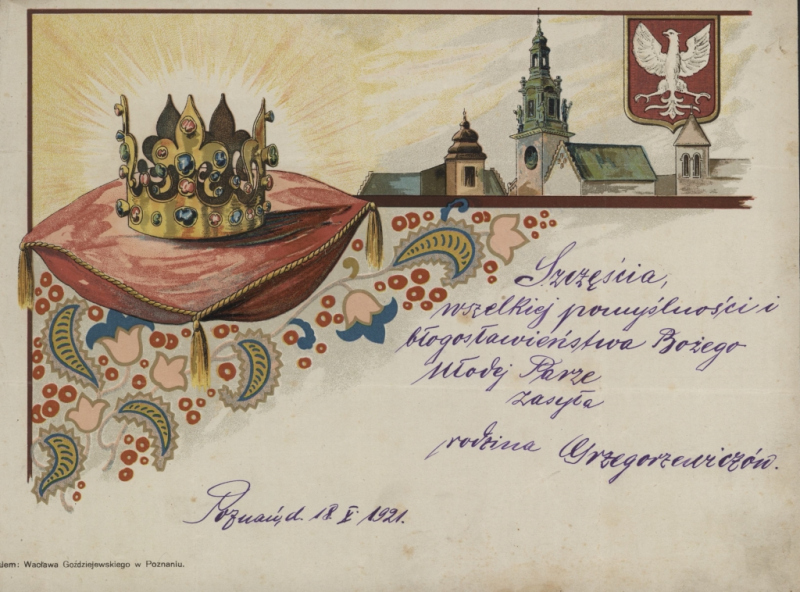 Szczęścia,
wszelkiej pomyślności i
błogosławieństwa Bożego
Młodej Parze
zasyła
rodzina Grzegorzewiczów.
Poznań, d. 18 X 1921.
Wacława Goździejewskiego w Poznaniu.